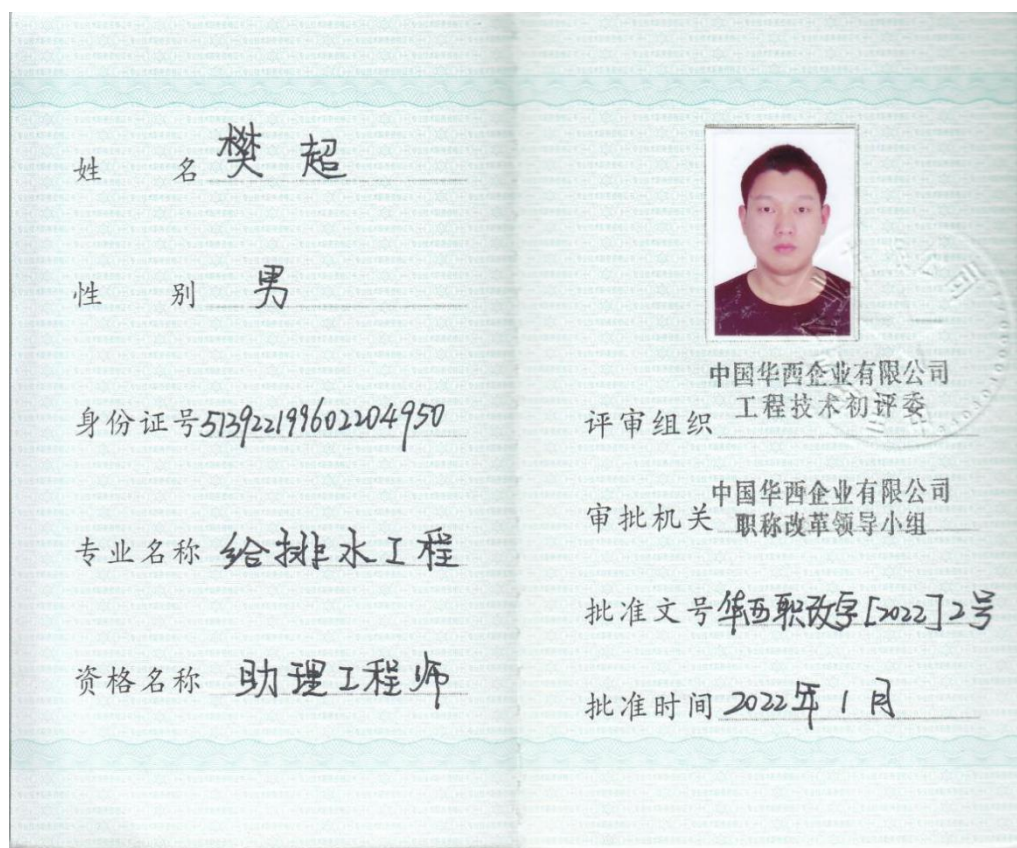 姓名 樊超
性别 男
身份证号 513922199602204950
专业名称 给排水工程
资格名称 助理工程师
中国华西企业有限公司
评审组织 工程技术初评委
中国华西企业有限公司
审批机关 职称改革领导小组
批准文号 华西职改字[2022]2号
批准时间 2022年1月